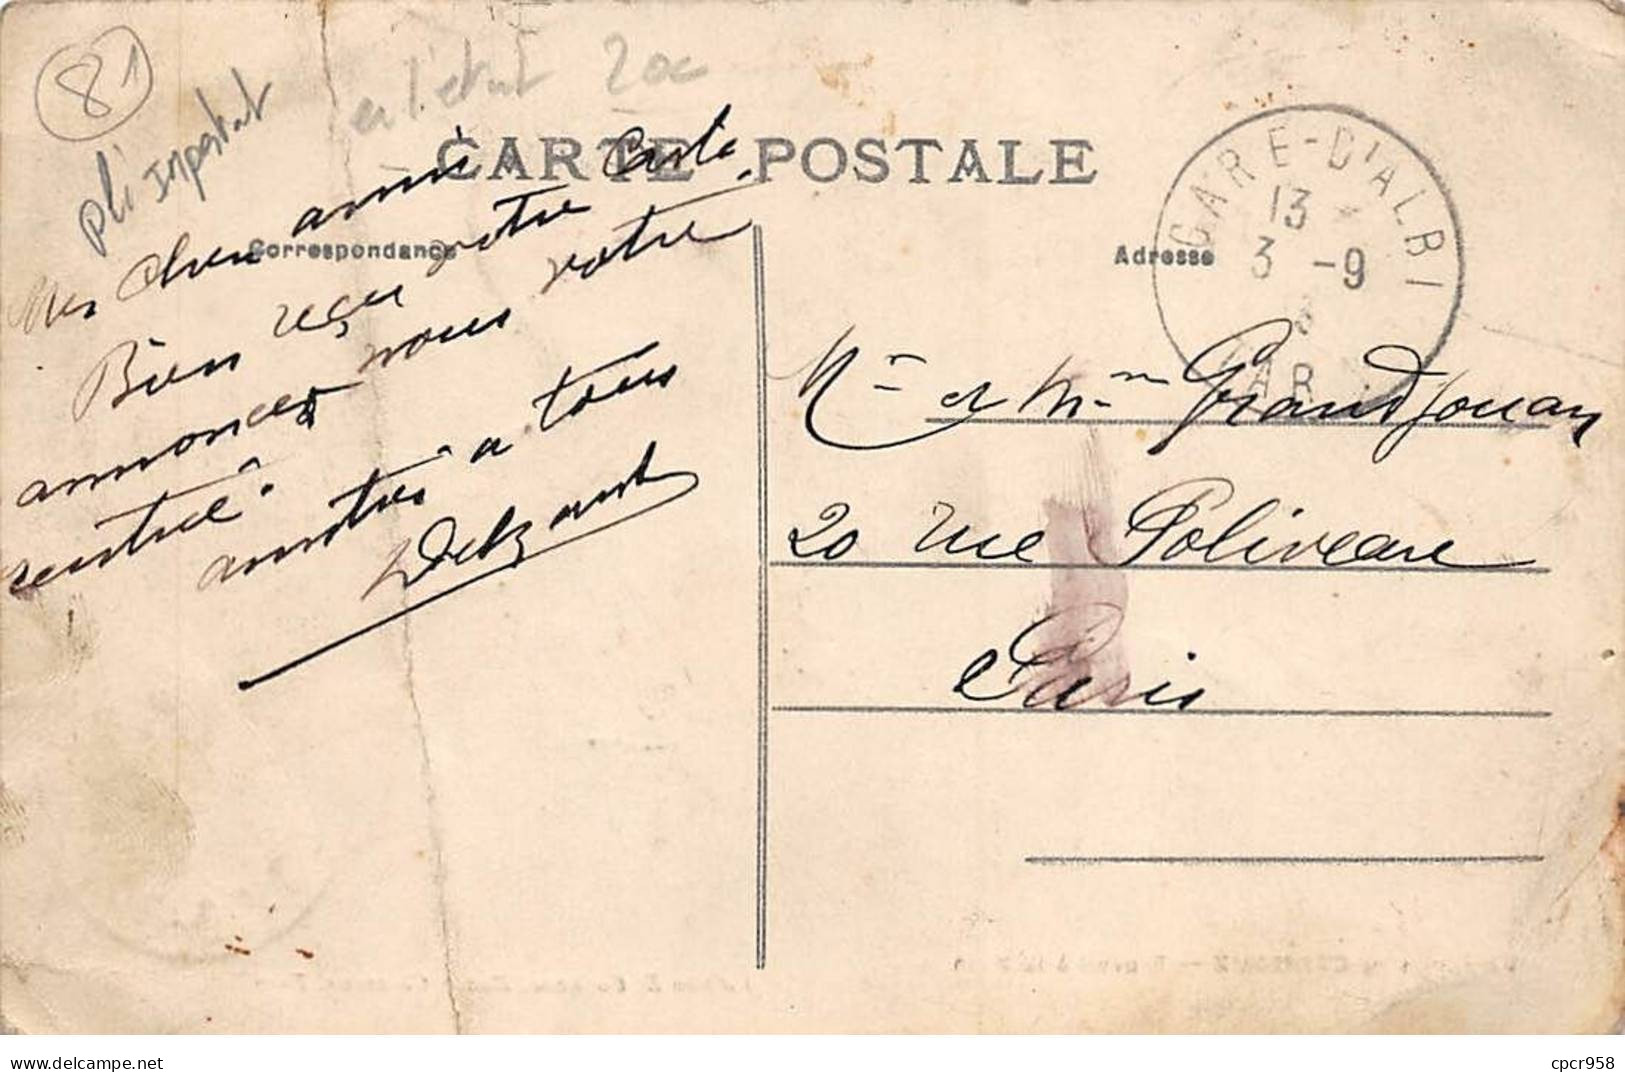 81
pli important
en l'état 20c
CARTE POSTALE
Correspondance
Adresse
GARE-D'ALBI
13
3 -9
TARN
Mes chers amis
Bien reçu votre Carte
annonces nous votre
rentrée.
amitiés a tous
Delzant
Mr et Mme Grandjouan
20 rue Poliveau
Paris
cpcr958